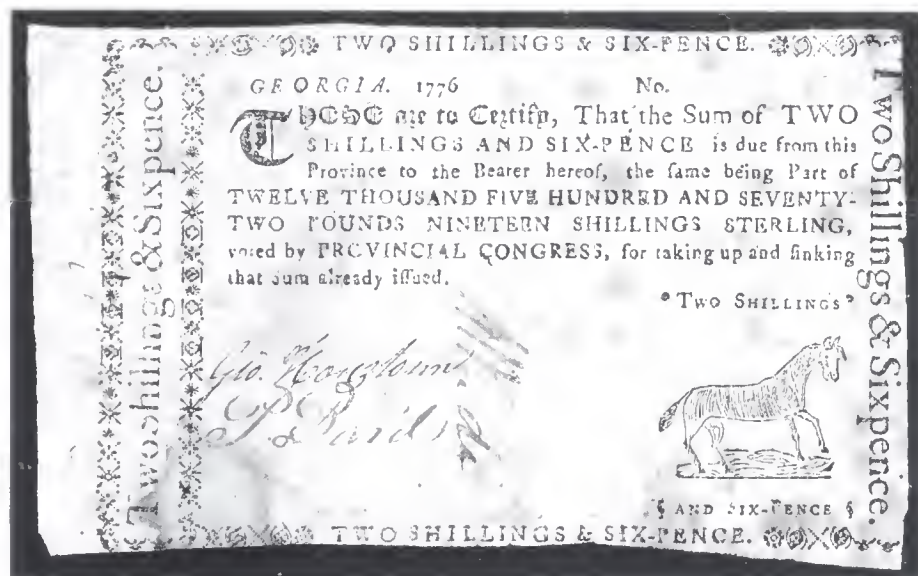 TWO SHILLINGS & SIX-PENCE.
Twoshillings &Sixpence.
GEORGIA. 1776 No.
THESE are to Certify, That the Sum of TWO
SHILLINGS AND SIX-PENCE is due from this
Province to the Bearer hereof, the same being Part of
TWELVE THOUSAND FIVE HUNDRED AND SEVENTY-
TWO POUNDS NINETEEN SHILLINGS STERLING,
voted by PROVINCIAL CONGRESS, for taking up and sinking
that Sum already issued.
TWO SHILLINGS
Geo. Houstoun
AND SIX-PENCE
TWO SHILLINGS & SIX-PENCE.
Two Shillings & Sixpence.